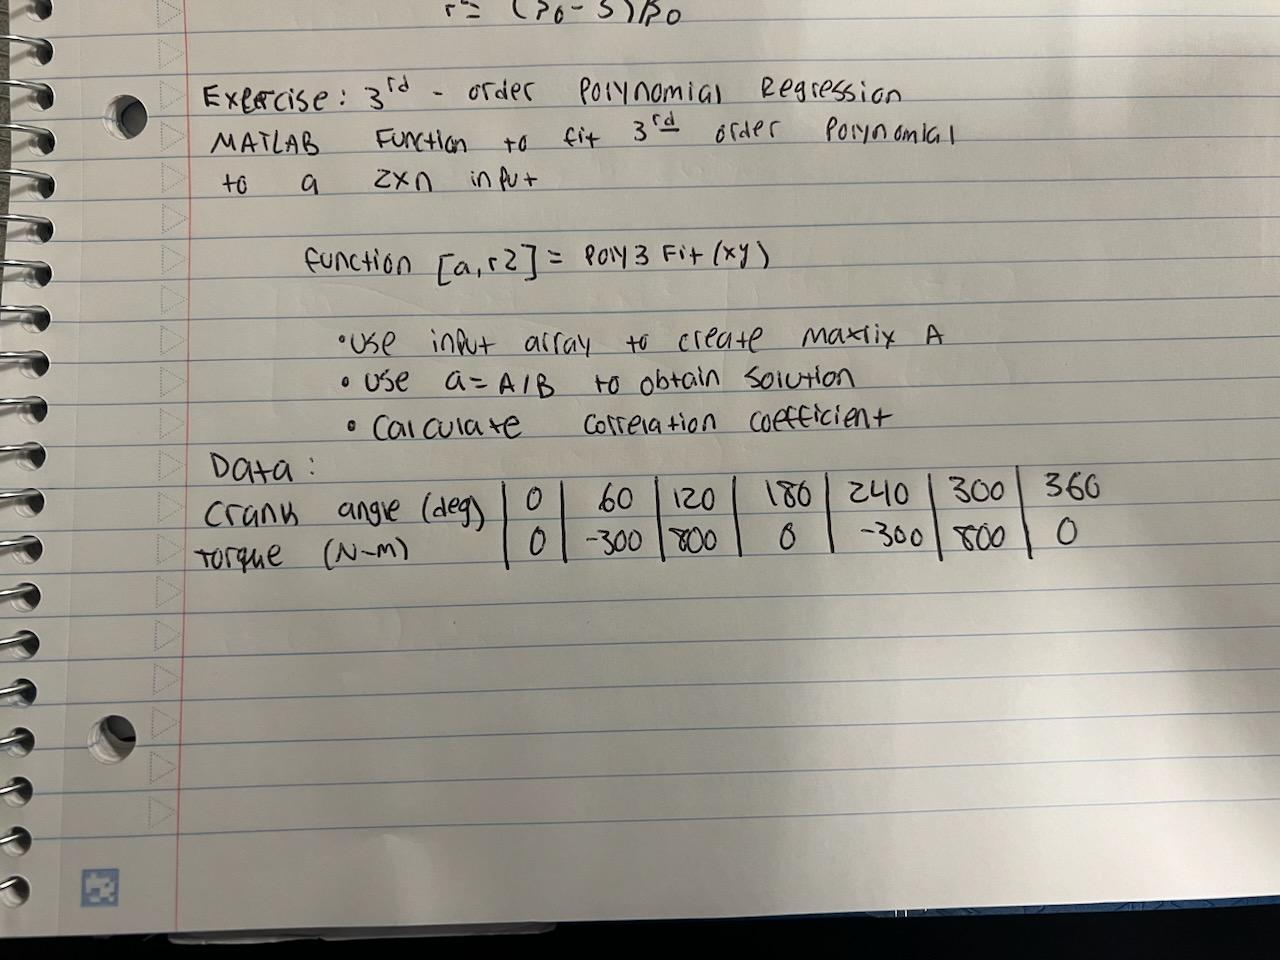 r² = (S₀ - S)/S₀
Exercise: 3rd - order Polynomial Regression
MATLAB Function to fit 3rd order Polynomial
to a 2xn input
function [a, r2] = Poly3Fit(xy)
• Use input array to create Matrix A
• Use a = A/B to obtain solution
• Calculate correlation coefficient
Data:
Crank angle (deg) | 0 | 60 | 120 | 180 | 240 | 300 | 360
Torque (N-M) | 0 | -300 | 800 | 0 | -300 | 800 | 0